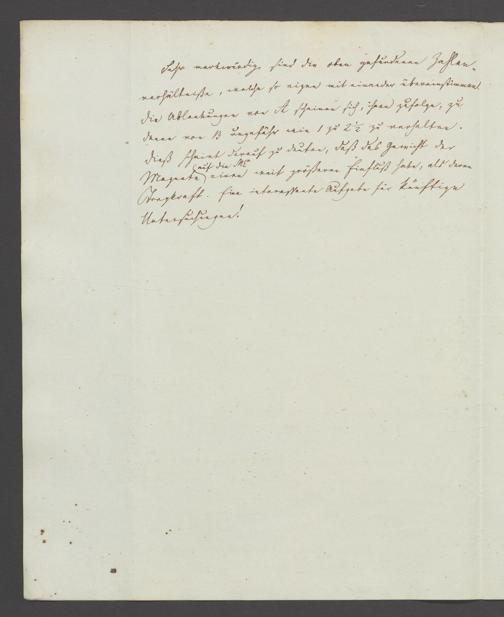 Sehr merkwürdig sind die oben gefundenen Zahlen-
verhältnisse, welche so eigen mit einander übereinstimmen
die Ablenkungen von A scheinen sich, ihnen zufolge, zu
denen von B ungefähr wie 1 zu 2½ zu verhalten.
dieß scheint darauf zu deuten, daß das Gewicht der
auf die
Magnete einen weit größeren Einfluß habe, als deren
Tragkraft. Eine interessante Aufgabe für künftige
Untersuchungen!